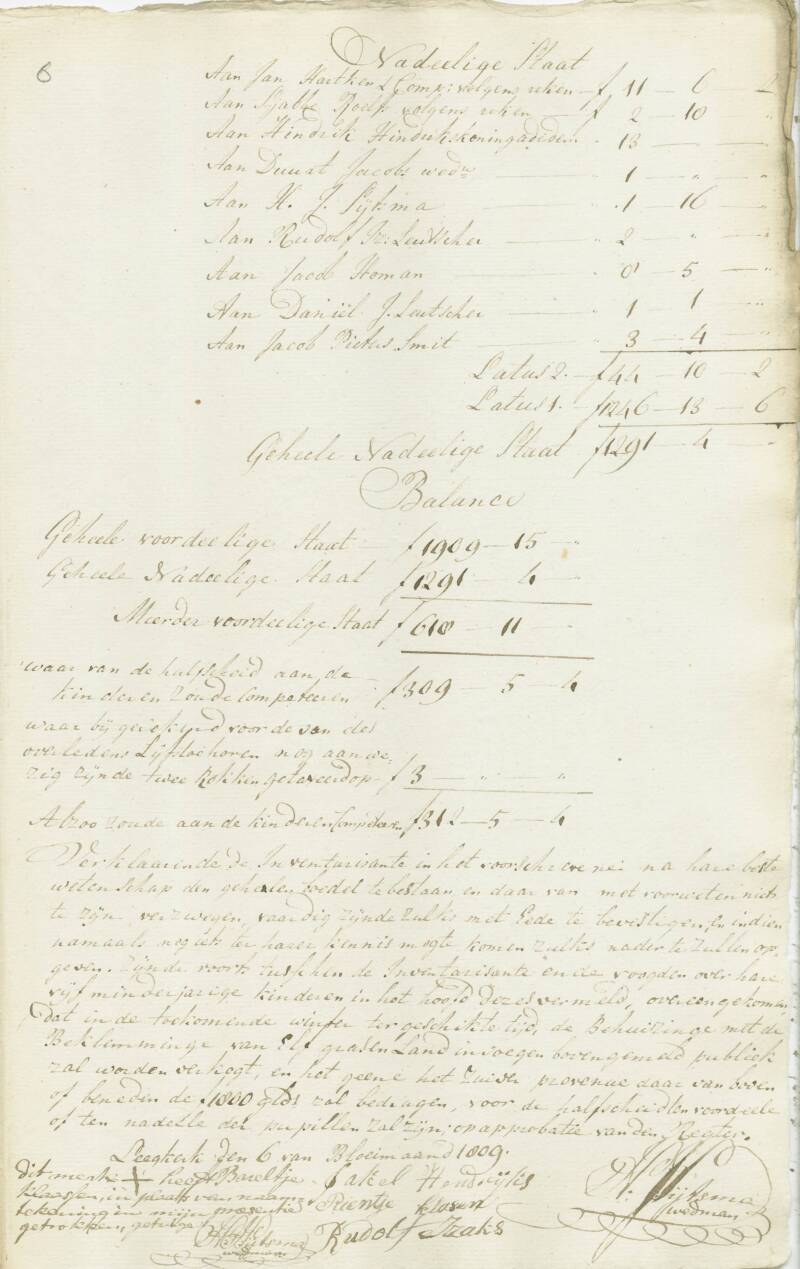 6
Nadeelige Staat
Aan Jan Hartkens & Comp: volgens reken – f 11 – 6 – 2
Aan Sjabbe Roelf volgens reken – f 2 – 10 "
Aan Hindrik Hindriks koning adidem " 13 – –
Aan Duurt Jacobs wedw – 1 – " – "
Aan H. J. Sijtsma – " 1 – 16 – "
Aan Rudolf Iz: Leutscher – " 2 – " – "
Aan Jacob Homan – " 0 – 5 – "
Aan Daniël J. Leutscher – " 1 – 1 – "
Aan Jacob Pieters Smit – " 3 – 4 – "
Latus 2. – f 44 – 10 – 2
Latus 1. – f 1246 – 13 – 6
Geheele Nadeelige Staat f 1291 – 4 – "
Balance
Geheele voordeelige Staat – f 1909 – 15 – "
Geheele Nadeelige Staat f 1291 – 4 – "
Meerder voordeelige Staat f 618 – 11 – "
waar van de halfscheid aan de
kinderen zoude Competeeren f 309 – 5 – 4
waar bij gerekend voor de van des
overledens Lijfstoehoren nog aanwe-
zig zijnde twee Rokken getaxeerd op – f 3 – " – "
Alzoo zoude aan de kinderen Competeeren f 312 – 5 – 4
Verklaarende de Inventarisante in het voorschrevene na hare beste
wetenschap den geheelen boedel te bestaan en daar van met voorweten niets
te zijn verzwegen, vaardig zijnde zulks met Eede te bevestigen, En indien
namaals nog iets ter harer kennis mogte komen zulks nader te zullen op-
geven. Zijnde voorts tusschen de Inventarisante en de voogden over hare
vijf minderjarige kinderen in het hoofd dezes vermeld, overeengekomen,
dat in de toekomende winter ter geschikte tijd, de Behuizinge met de
Beklemminge van Elf grasen Land in voegen bovengemeld publiek
zal worden verkogt, en het geene het zuiver provenue daar van boven
of beneden de f 1800 glds zal bedragen, voor de halfscheid ten voordeele
of ten nadeele der pupillen zal zijn; op approbatie van den Regter.
Leegkerk den 6 van Bloeimaand 1809.
dit merk X heeft Bareltje
Klaasens, in plaats van naam-
tekening in mijn presentie
getrokken, getuige
H J Sijtsma
wedman
Fakel Hendrijks
Rientje Klasen
Rudolf Izaks
H: J: Sijtsma
wedman